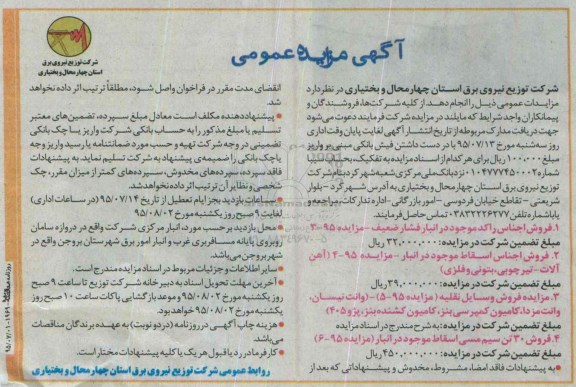 آگهی مزایده عمومی
شرکت توزیع نیروی برق
استان چهارمحال و بختیاری
شرکت توزیع نیروی برق استان چهارمحال و بختیاری در نظر دارد
مزایدات عمومی ذیل را انجام دهد. از کلیه شرکت‌ها، فروشندگان و
پیمانکاران واجد شرایط که مایلند در مزایده شرکت فرمایند دعوت می‌شود
جهت دریافت مدارک مربوطه از تاریخ انتشار آگهی لغایت پایان وقت اداری
روز سه‌شنبه مورخ ۹۵/۰۷/۱۳ با در دست داشتن فیش بانکی مبنی بر واریز
۱۰۰.۰۰۰ ریال برای هر کدام از اسناد مزایده به تفکیک، به حساب
شماره ۰۱۰۴۷۷۷۴۵۰۰۰۲ نزد بانک ملی مرکزی شعبه شهرکرد بنام شرکت
توزیع نیروی برق استان چهارمحال و بختیاری به آدرس شهرکرد - بلوار
شریعتی - تقاطع خیابان فردوسی - امور بازرگانی - اداره تدارکات، مراجعه و
یا با شماره تلفن ۰۳۸۳۲۲۲۶۲۷۷ تماس حاصل فرمایند.
۱. فروش اجناس راکد موجود در انبار فشار ضعیف - مزایده ۳-۹۵
مبلغ تضمین شرکت در مزایده: ۳۲.۰۰۰.۰۰۰ ریال
۲. فروش اجناس اسقاط موجود در انبار - مزایده ۴-۹۵ (آهن
آلات-تیرچوبی، بتونی و فلزی)
مبلغ تضمین شرکت در مزایده: ۳۹.۰۰۰.۰۰۰ ریال
۳. مزایده فروش وسایل نقلیه (مزایده ۵-۹۵) - (وانت نیسان،
وانت مزدا، کامیون کمپرسی بنز، کامیون کشنده بنز، پژو ۴۰۵)
مبلغ تضمین شرکت در مزایده: به شرح مندرج در اسناد مزایده
۴. فروش ۳۰ تن سیم مسی اسقاط موجود در انبار (مزایده ۶-۹۵)
مبلغ تضمین شرکت در مزایده: ۴۵۰.۰۰۰.۰۰۰ ریال
• به پیشنهادات فاقد امضاء، مشروط، مخدوش و پیشنهاداتی که بعد از
انقضای مدت مقرر در فراخوان واصل شود، مطلقاً ترتیب اثر داده نخواهد
شد.
• پیشنهاددهنده مکلف است معادل مبلغ سپرده، تضمین‌های معتبر
تسلیم یا مبلغ مذکور را به حساب بانکی شرکت واریز یا چک بانکی
تضمینی در وجه شرکت تهیه و حسب مورد ضمانتنامه یا رسید واریز وجه
یا چک بانکی را ضمیمه‌ی پیشنهاد به شرکت تسلیم نماید. به پیشنهادات
فاقد سپرده، سپرده‌های مخدوش، سپرده‌های کمتر از میزان مقرر، چک
شخصی و نظایر آن ترتیب اثر داده نخواهد شد.
• ساعات بازدید بجز ایام تعطیل از تاریخ ۹۵/۰۷/۱۴ (در ساعات اداری)
لغایت ۹ صبح روز یکشنبه مورخ ۹۵/۰۸/۰۲
• محل بازدید بر حسب مورد، انبار مرکزی شرکت واقع در دروازه سامان
روبروی پایانه مسافربری غرب و انبار امور برق شهرستان بروجن واقع در
شهر بروجن می‌باشد.
• سایر اطلاعات و جزئیات مربوط در اسناد مزایده مندرج است.
• آخرین مهلت تحویل اسناد به دبیرخانه شرکت توزیع تا ساعت ۹ صبح
روز یکشنبه مورخ ۹۵/۰۸/۰۲ و موعد بازگشایی پاکات ساعت ۱۰ صبح روز
یکشنبه مورخ ۹۵/۰۸/۰۲ خواهد بود.
• هزینه چاپ آگهی در روزنامه (در دو نوبت) به عهده برندگان مناقصات
می‌باشد.
• کارفرما در رد یا قبول هر یک یا کلیه پیشنهادات مختار است.
روابط عمومی شرکت توزیع نیروی برق استان چهارمحال و بختیاری